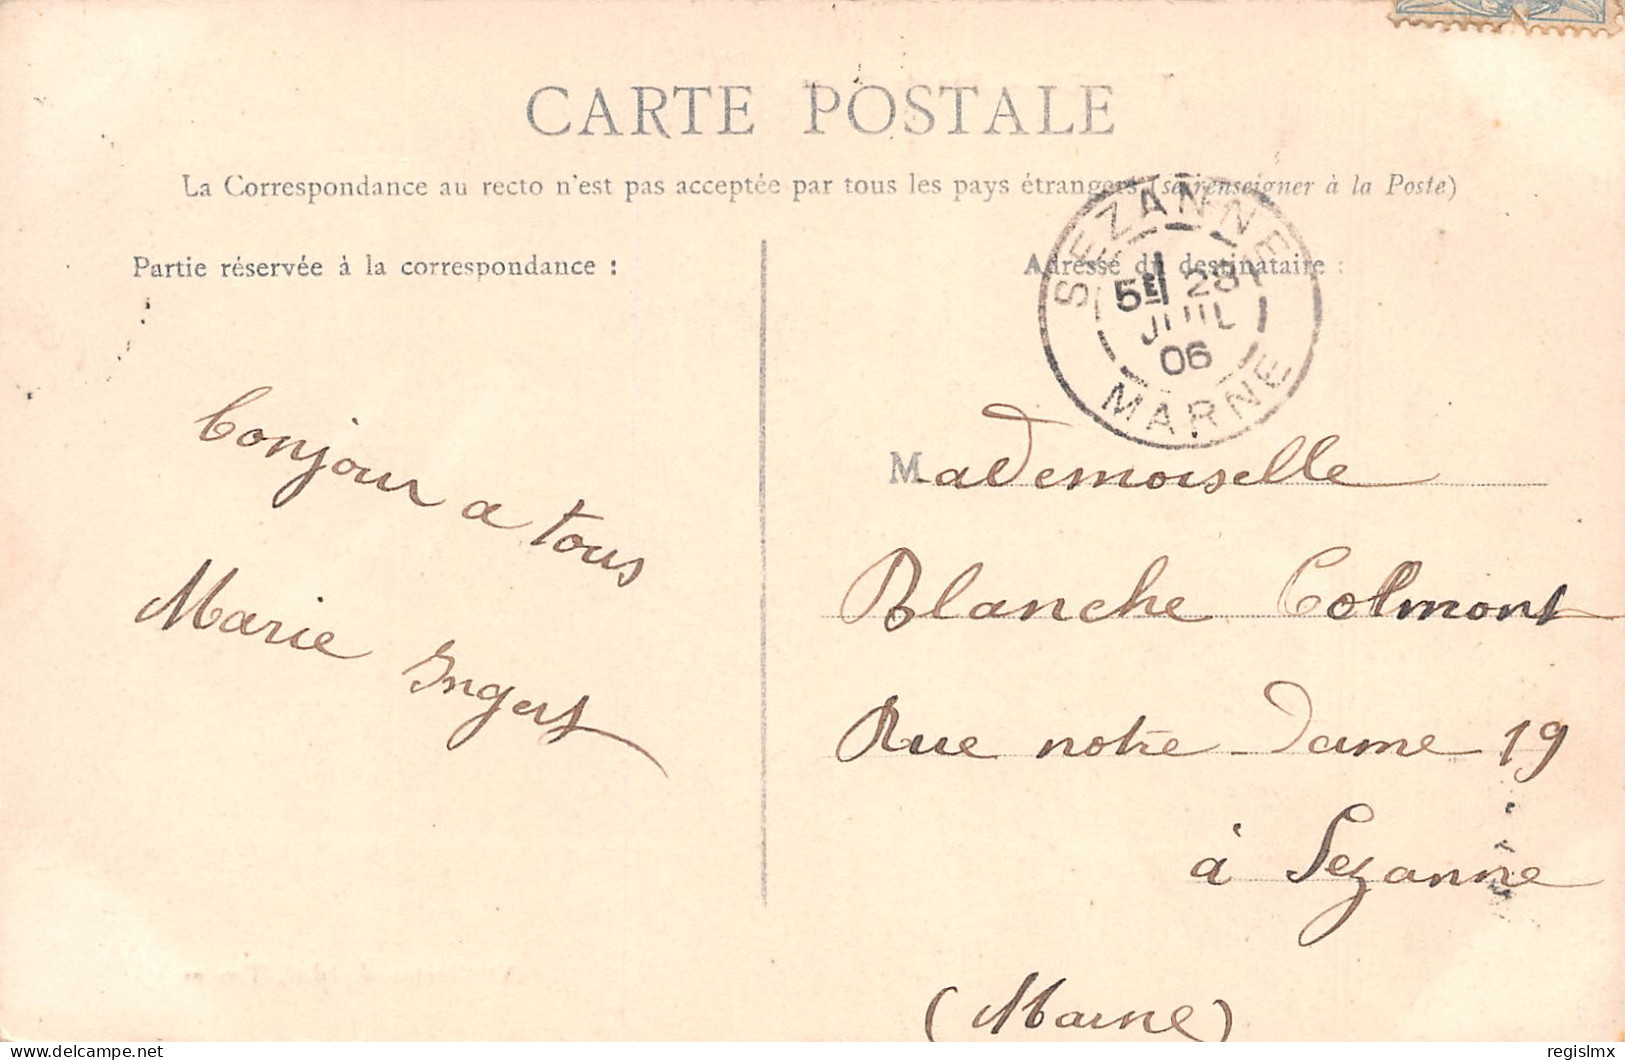 CARTE POSTALE
La Correspondance au recto n'est pas acceptée par tous les pays étrangers (se renseigner à la Poste)
Partie réservée à la correspondance :
Adresse du destinataire :
SEZANNE
5E 28
JUIL
06
MARNE
bonjour a tous
Marie
Mademoiselle
Blanche Colmont
Rue notre Dame 19
à Sezanne
(Marne)
regislmx